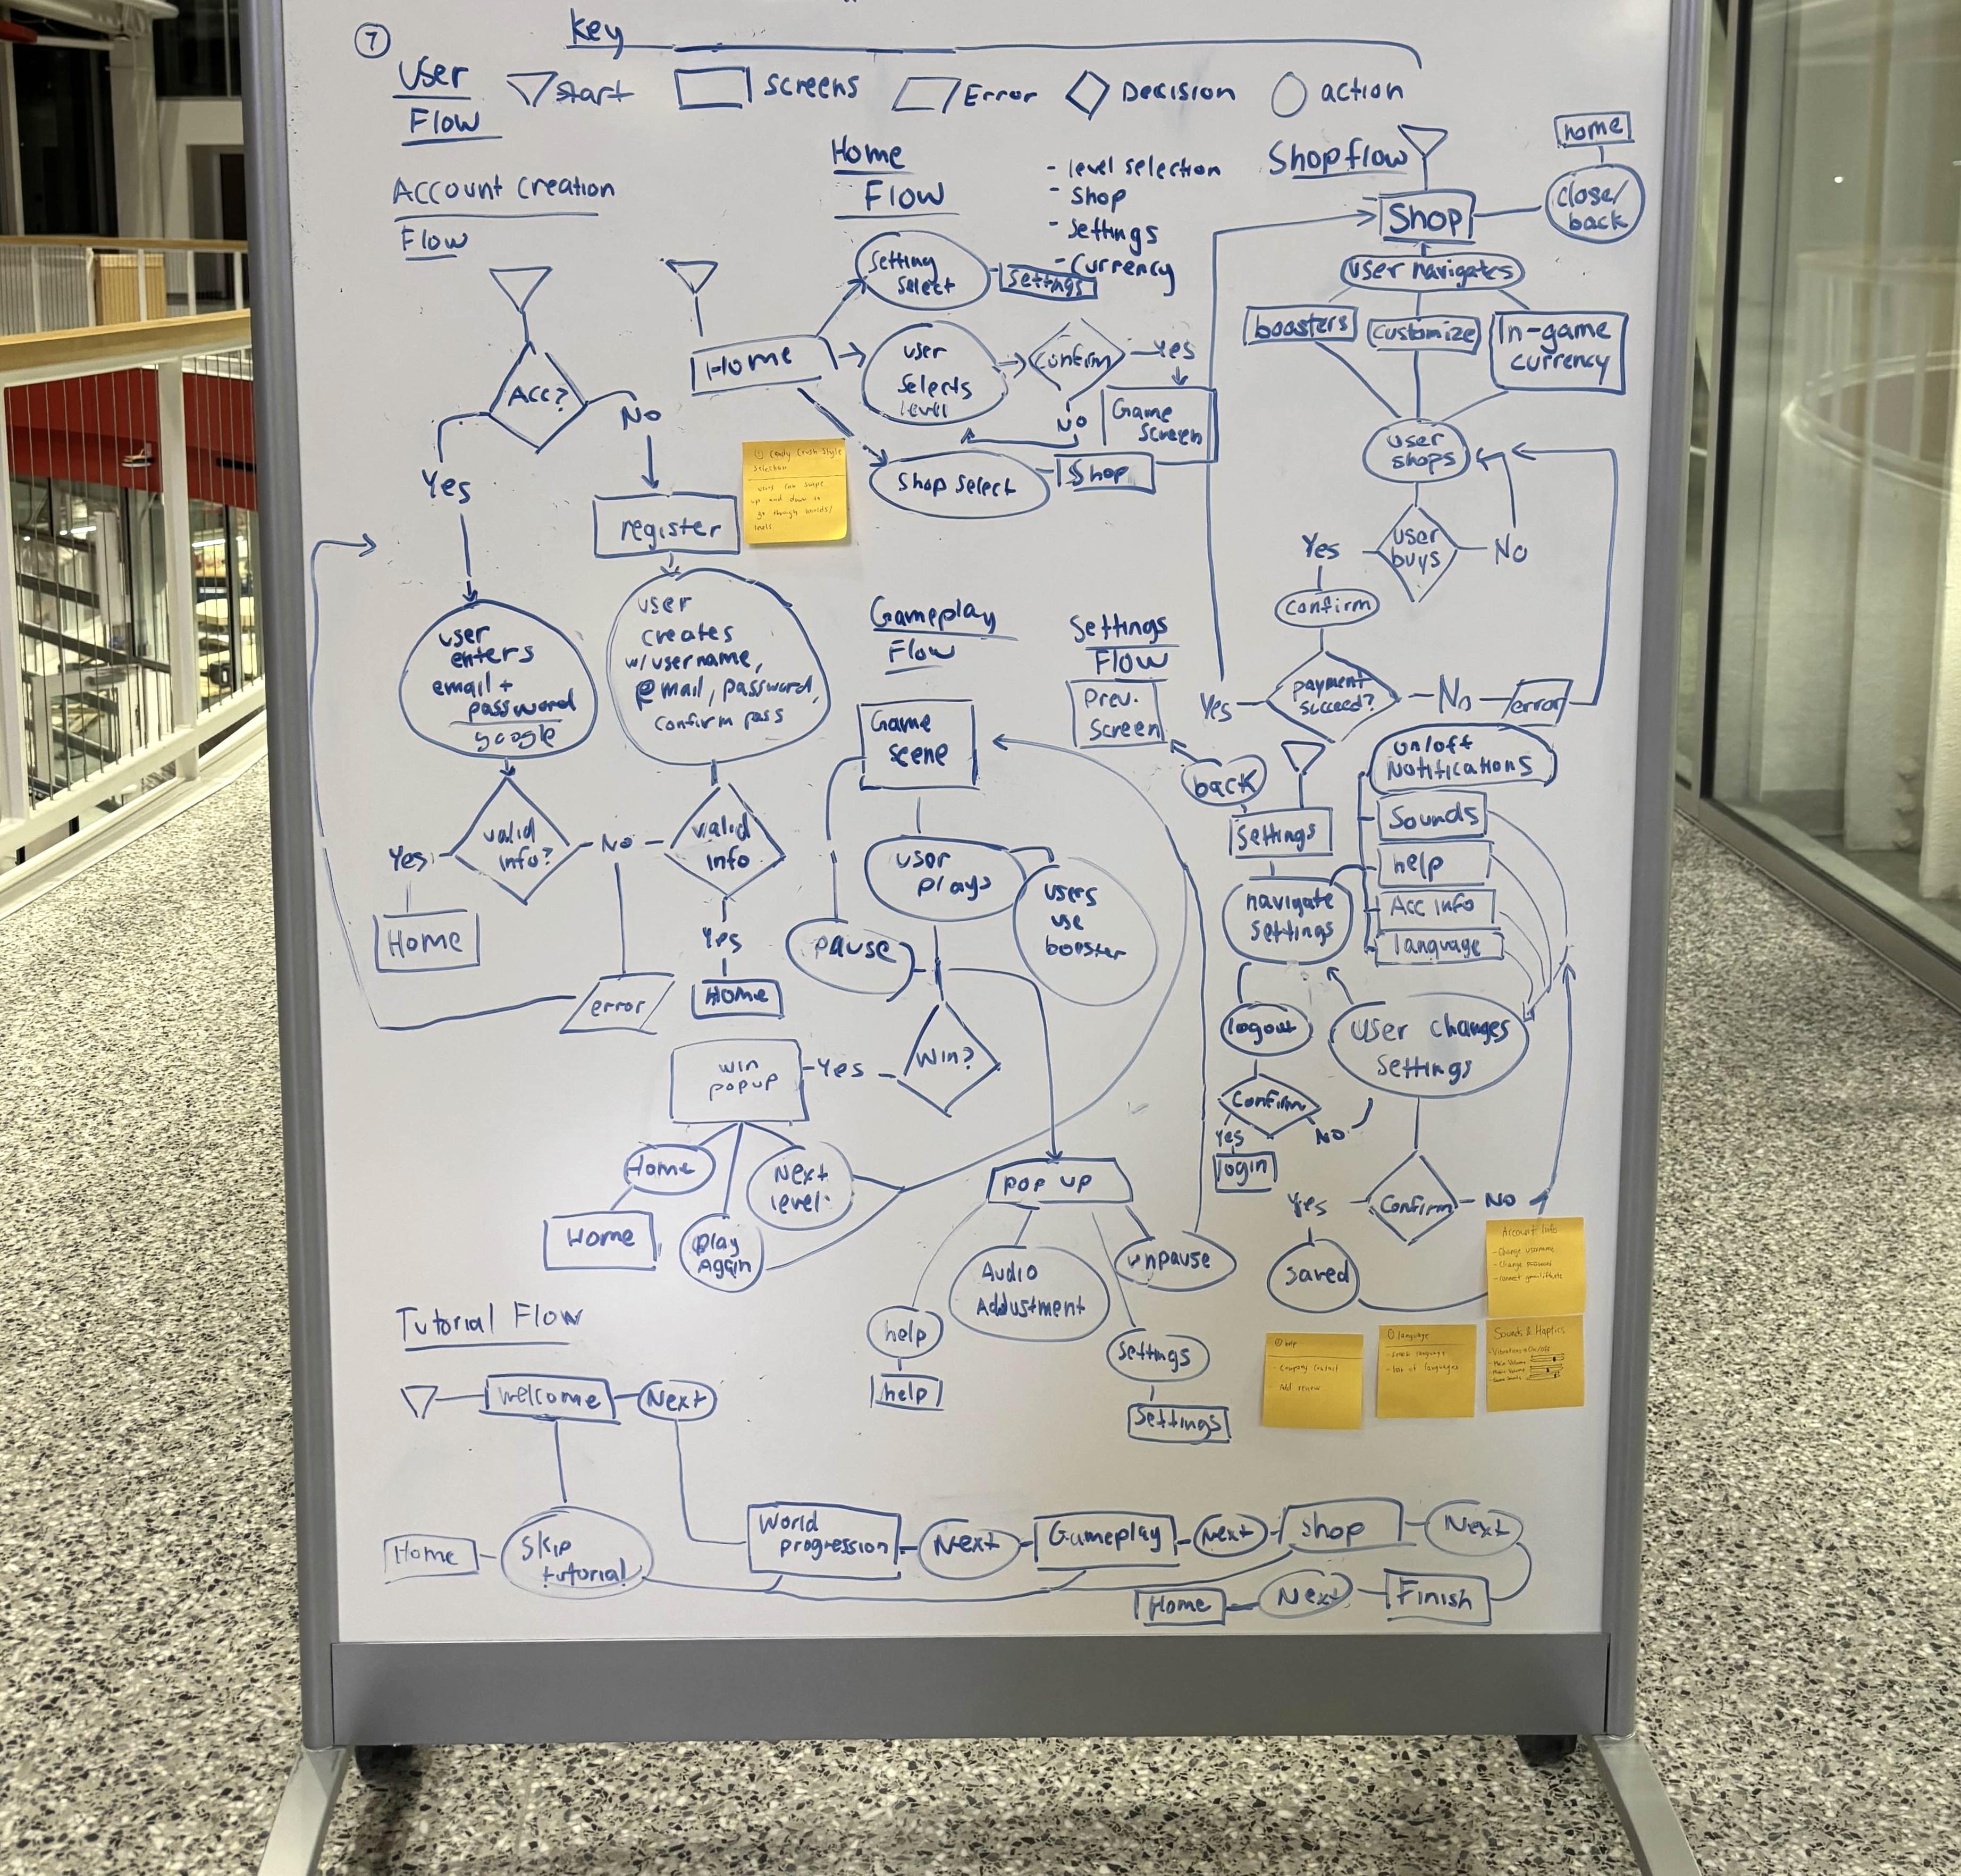 7
User
Flow
Key
start
screens
Error
Decision
action
Account Creation
Flow
Acc?
Yes
No
register
user
enters
email +
password
google
user
creates
w/username,
email, password,
confirm pass
valid
info?
Yes
No
valid
info
Yes
Home
Home
error
Home
Flow
- level selection
- Shop
- Settings
- Currency
Home
Setting
Select
Settings
user
selects
level
Confirm
Yes
NO
Game
Screen
Shop select
Shop
① Candy Crush Style
Selection
users can swipe
up and down to
go through worlds/
levels
Shop flow
Shop
home
close/
back
user navigates
boosters
Customize
In-game
currency
user
shops
user
buys
Yes
No
Confirm
payment
succeed?
Yes
No
error
Gameplay
Flow
Game
scene
user
plays
users
use
booster
pause
Win?
Yes
win
popup
Home
Home
Play
Again
Next
level
POP UP
help
help
Audio
Addustment
Settings
Settings
unpause
Settings
Flow
Prev.
Screen
back
Settings
navigate
settings
on/off
Notifications
Sounds
help
Acc info
language
logout
Confirm
Yes
NO
login
User changes
settings
Confirm
Yes
NO
saved
Account Info
- Change username
- Change password
help
- Company Contact
Add review
language
- Select language
- list of languages
Sounds & Haptics
- Vibrations On/Off
- Main Volume
- Music Volume
Tutorial Flow
Welcome
Next
Home
Skip
tutorial
World
progression
Next
Gameplay
Next
Shop
Next
Finish
Next
Home